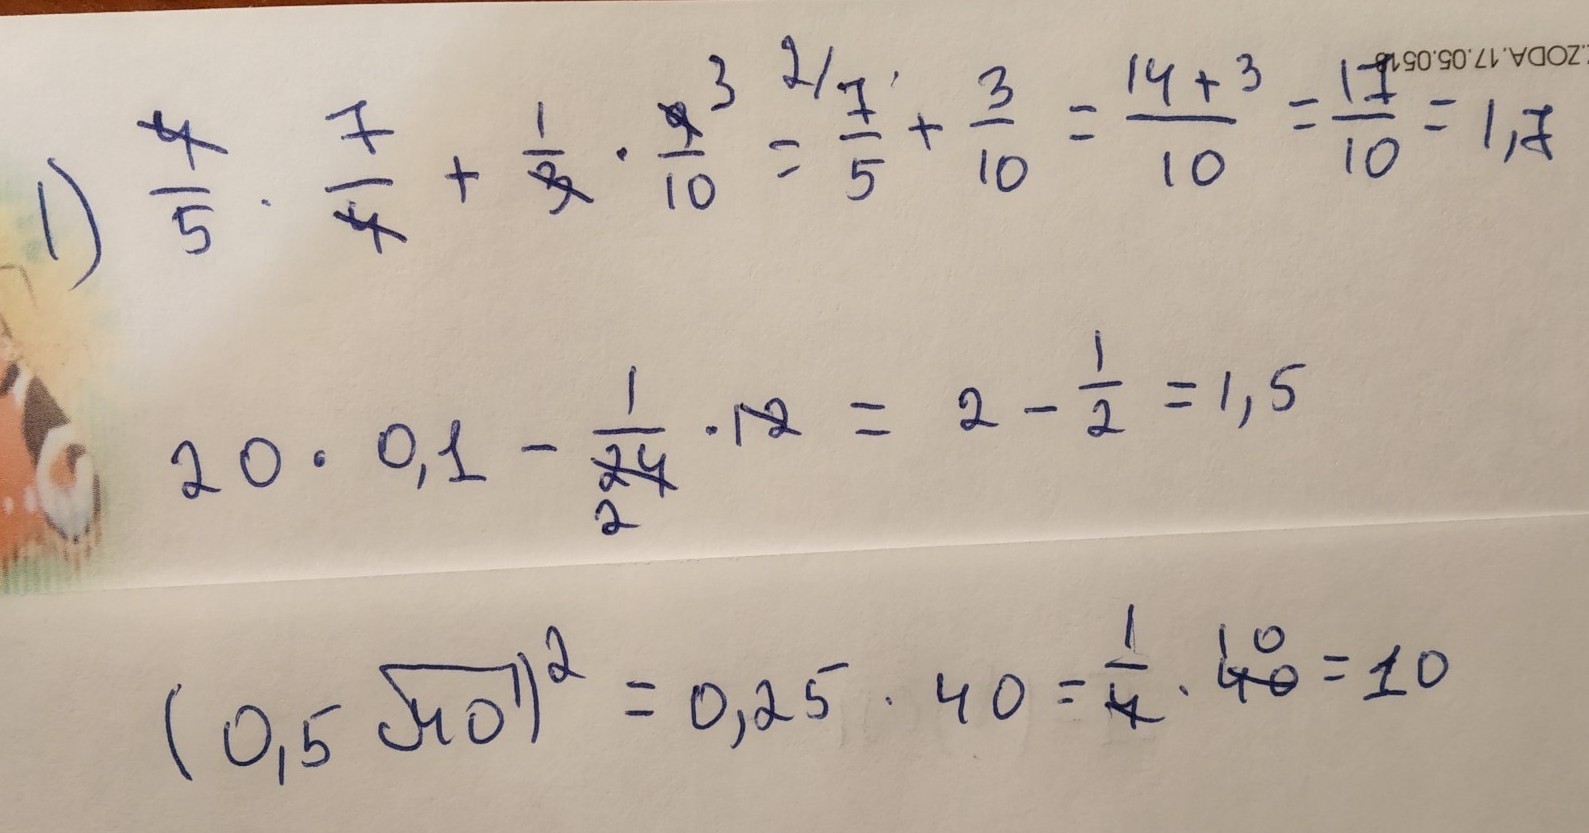 .ZODA.17.05.051
1) 4/5 · 7/4 + 1/3 · 9/10 ³ = ²/ 7/5 + 3/10 = (14+3)/10 = 17/10 = 1,7
20 · 0,1 - 1/24 · 12 = 2 - 1/2 = 1,5
2
(0,5 √40)² = 0,25 · 40 = 1/4 · 40 10 = 10